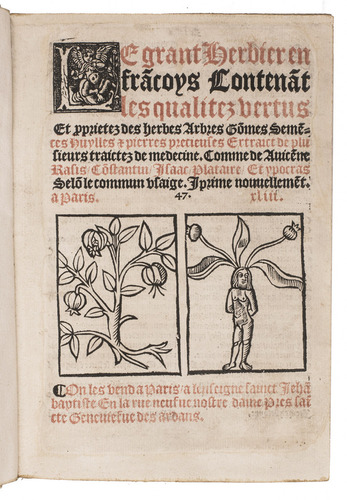 LE grant Herbier en
frãcoys Contenãt
les qualitez vertus
Et ꝓprietez des herbes Arbres Gõmes Semẽ-
ces Huylles & pierres precieuses Extraict de plu
sieurs traictez de medecine. Comme de Auicẽne
Rasis, Cõstantin, Isaac, Plataire, Et ypocras
Selõ le commun vsaige. Jprime nouuellemẽt.
a Paris. 47. xliiii.
¶ On les vend a Paris a lenseigne sainct Jehã
baptiste En la rue neufue nostre dame Pres sai
cte Geneuiefue des ardans.